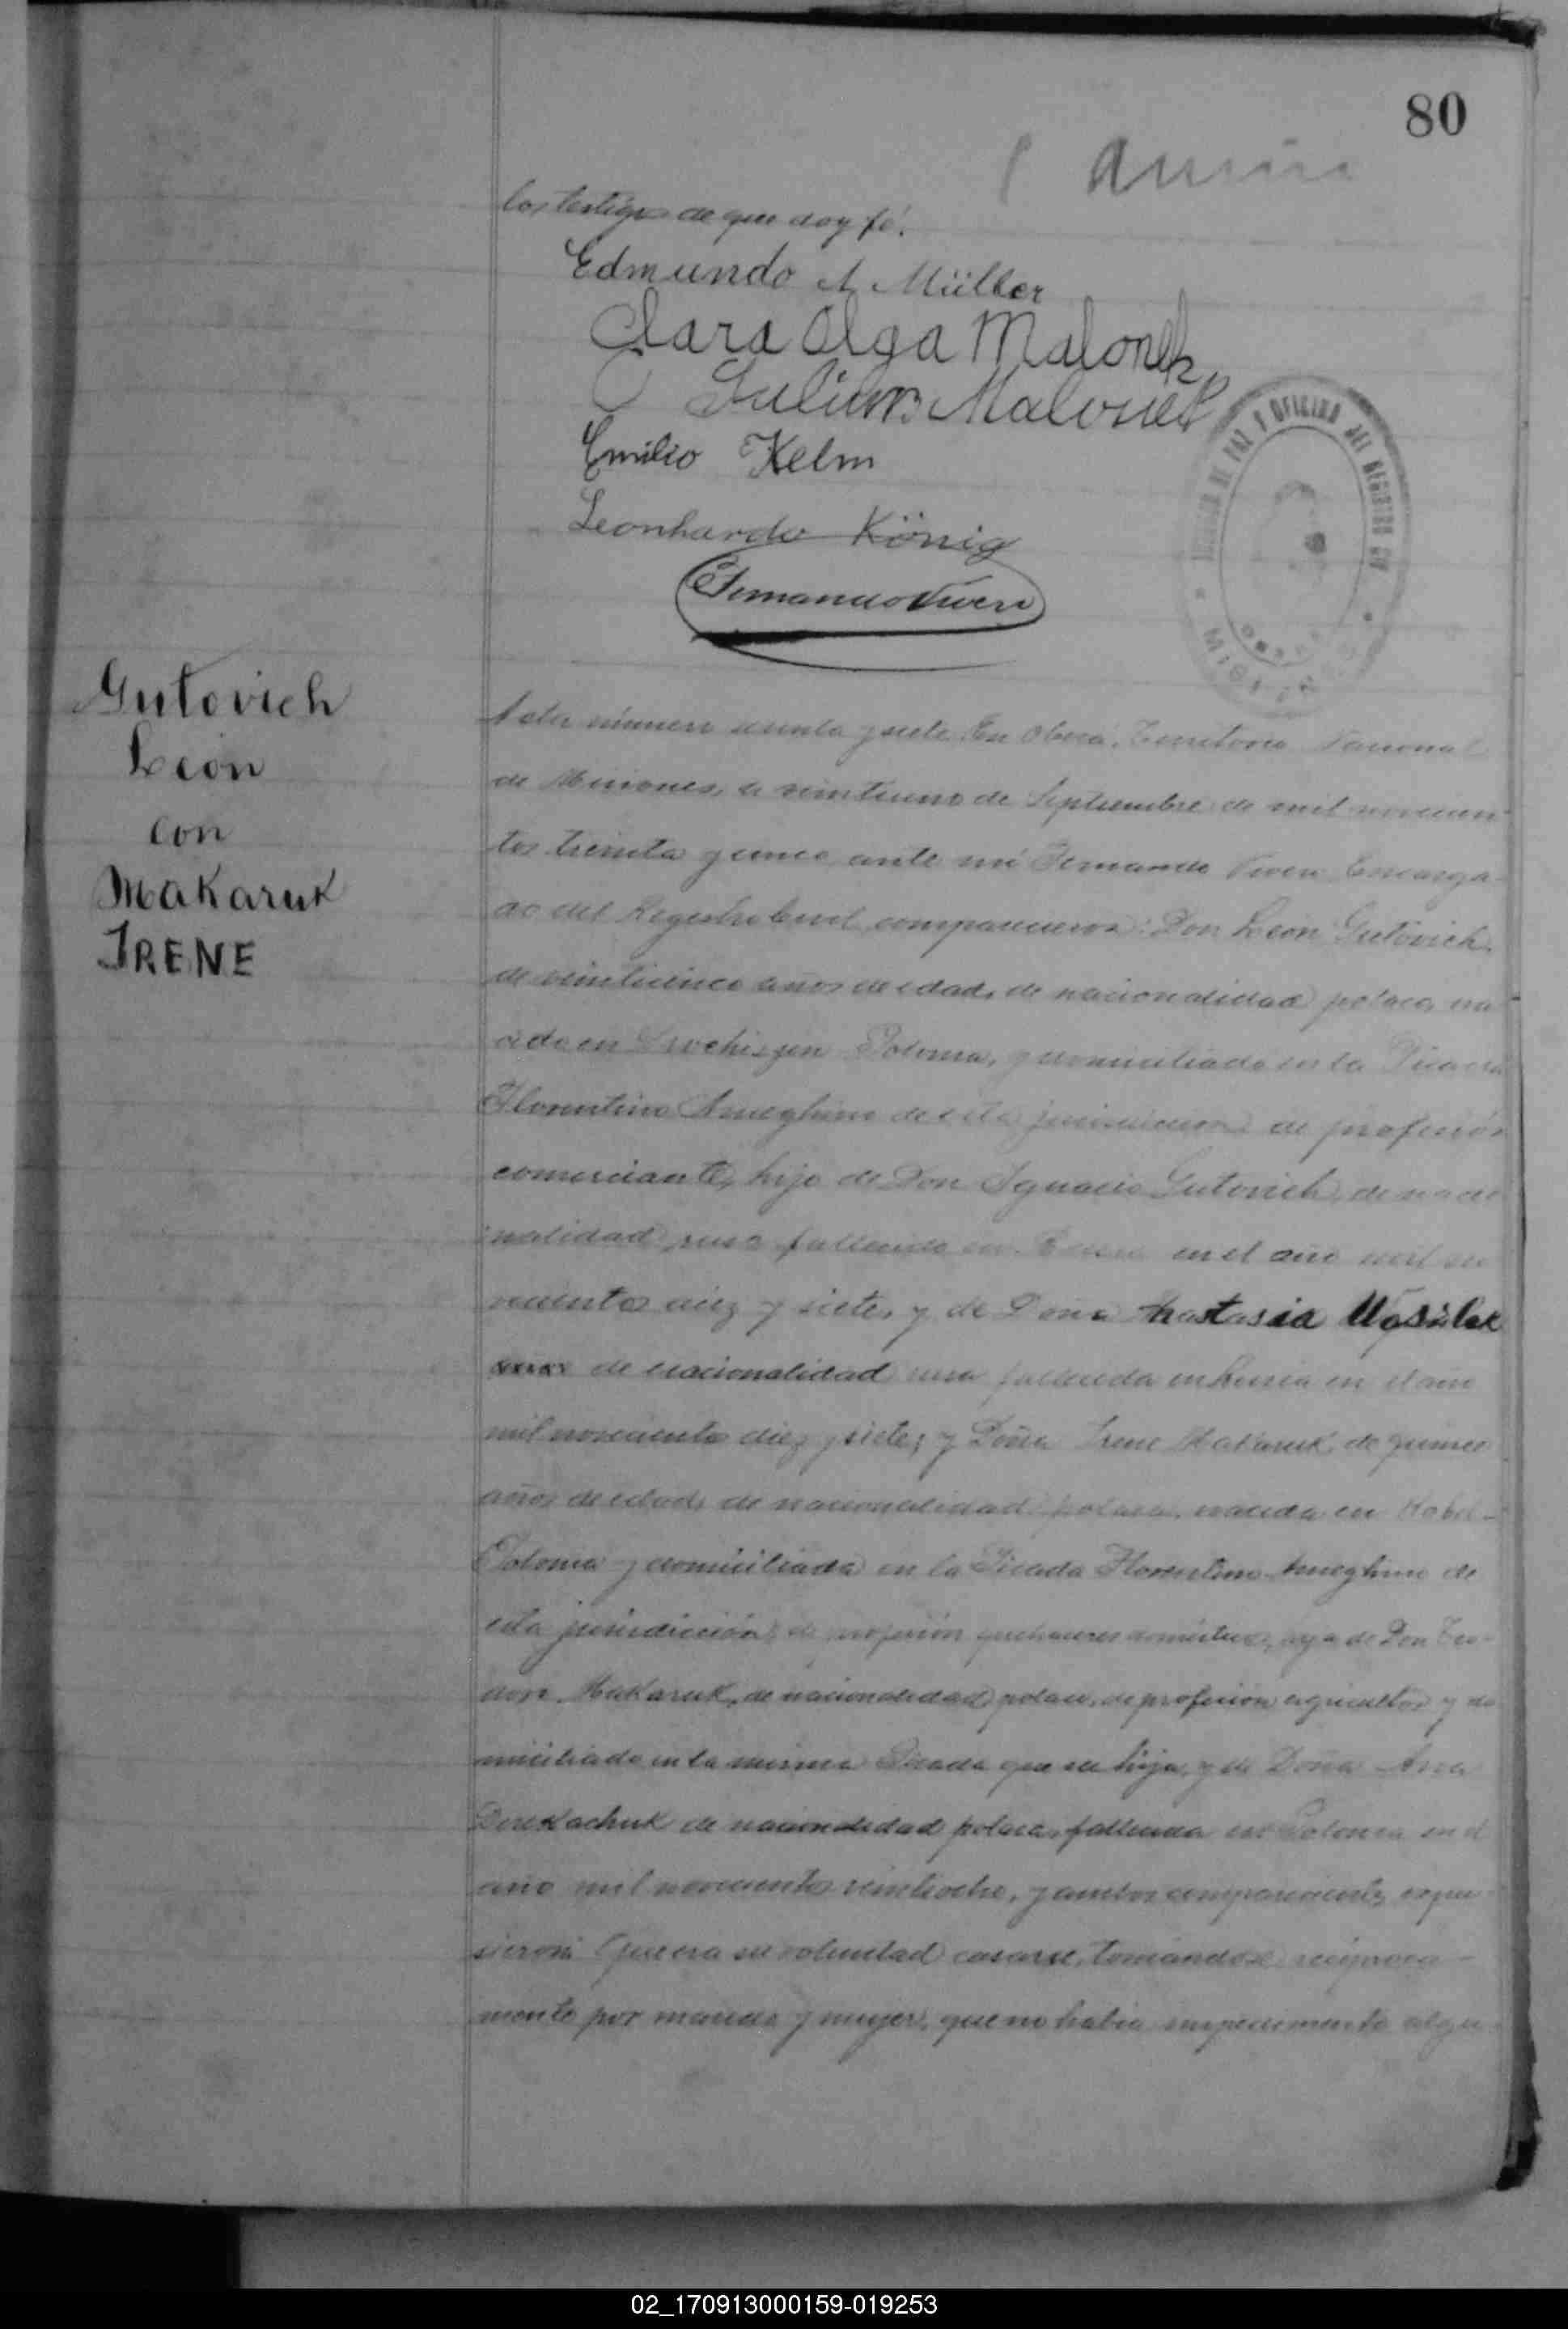 80
los testigos de que doy fé.
Edmundo A Müller
Clara Olga Malonek
Julius Malonek
Emilio Kelm
Leonhardo König
Fernando Vivern
DE PAZ Y OFICINA DEL REGISTRO
MISIONES
Gutovich
León
con
Makaruk
IRENE
Acta número y siete. En Oberá, Territorio Nacional
de Misiones, a veintiuno de Septiembre de mil novecien
tos treinta y cinco, ante mí Fernando Encarga-
do del Registro Civil, comparecieron: Don León Gutovich,
de veinticinco años de edad, de nacionalidad polaca, na
cido en Polonia, y domiciliado en la Picada
Florentino Ameghino de esta jurisdicción, de profesión
comerciante, hijo de Don Ignacio Gutovich, de nacio
nalidad rusa fallecido en Rusia en el año mil no
vecientos diez y siete, y de Doña Anastasia
de nacionalidad rusa fallecida en Rusia en el año
mil novecientos diez y siete; y Doña Irene Makaruk, de quince
años de edad, de nacionalidad polaca, nacida en Kobel-
Polonia y domiciliada en la Picada Florentino Ameghino de
esta jurisdicción, de profesión quehaceres domésticos, hija de Don Teo-
doro Makaruk, de nacionalidad polaca, de profesión agricultor y do
miciliado en la misma Picada que su hija, y de Doña Ana
Derekachuk de nacionalidad polaca, fallecida en Polonia en el
año mil novecientos veintiocho, y ambos comparecientes expu-
sieron: Que era su voluntad casarse, tomándose recíproca-
mente por marido y mujer, que no había impedimento algu-
02_170913000159-019253